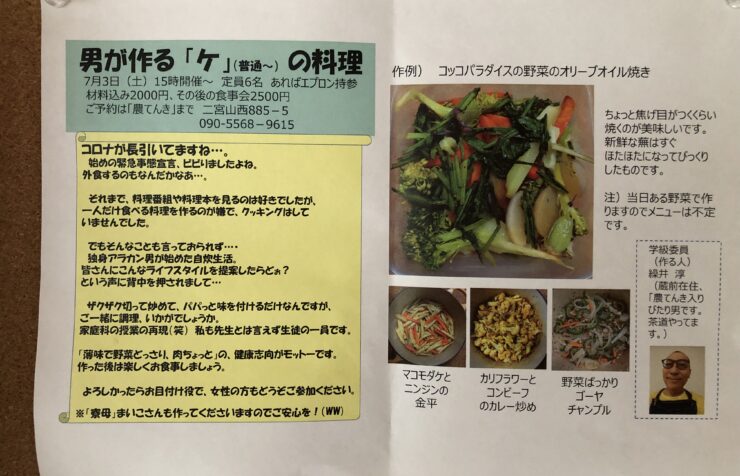 男が作る「ケ」(普通～)の料理
7月3日（土）15時開催～　定員6名　あればエプロン持参
材料込み2000円、その後の食事会2500円
ご予約は「農てんき」まで　二宮山西885－5
090-5568－9615
コロナが長引いてますね…。
始めの緊急事態宣言、ビビりましたよね。
外食するのもなんだかなあ…。
それまで、料理番組や料理本を見るのは好きでしたが、
一人だけ食べる料理を作るのが嫌で、クッキングはして
いませんでした。
でもそんなことも言っておられず…・
独身アラカン男が始めた自炊生活。
皆さんにこんなライフスタイルを提案したらどぉ？
という声に背中を押されまして…
ザクザク切って炒めて、パパっと味を付けるだけなんですが、
ご一緒に調理、いかがでしょうか。
家庭科の授業の再現(笑)　私も先生とは言えず生徒の一員です。
「薄味で野菜どっさり、肉ちょっと」の、健康志向がモットーです。
作った後は楽しくお食事しましょう。
よろしかったらお目付け役で、女性の方もどうぞご参加ください。
※「寮母」まいこさんも作ってくださいますのでご安心を！(WW)
作例）　コッコパラダイスの野菜のオリーブオイル焼き
ちょっと焦げ目がつくくらい
焼くのが美味しいです。
新鮮な蕪はすぐ
ほたほたになってびっくり
したものです。
注）当日ある野菜で作
りますのでメニューは不定
です。
マコモダケと
ニンジンの
金平
カリフラワーと
コンビーフ
のカレー炒め
野菜ばっかり
ゴーヤ
チャンプル
学級委員
（作る人）
繰井　淳
（蔵前在住、
「農てんき入り
びたり男です。
茶道やってま
す。）